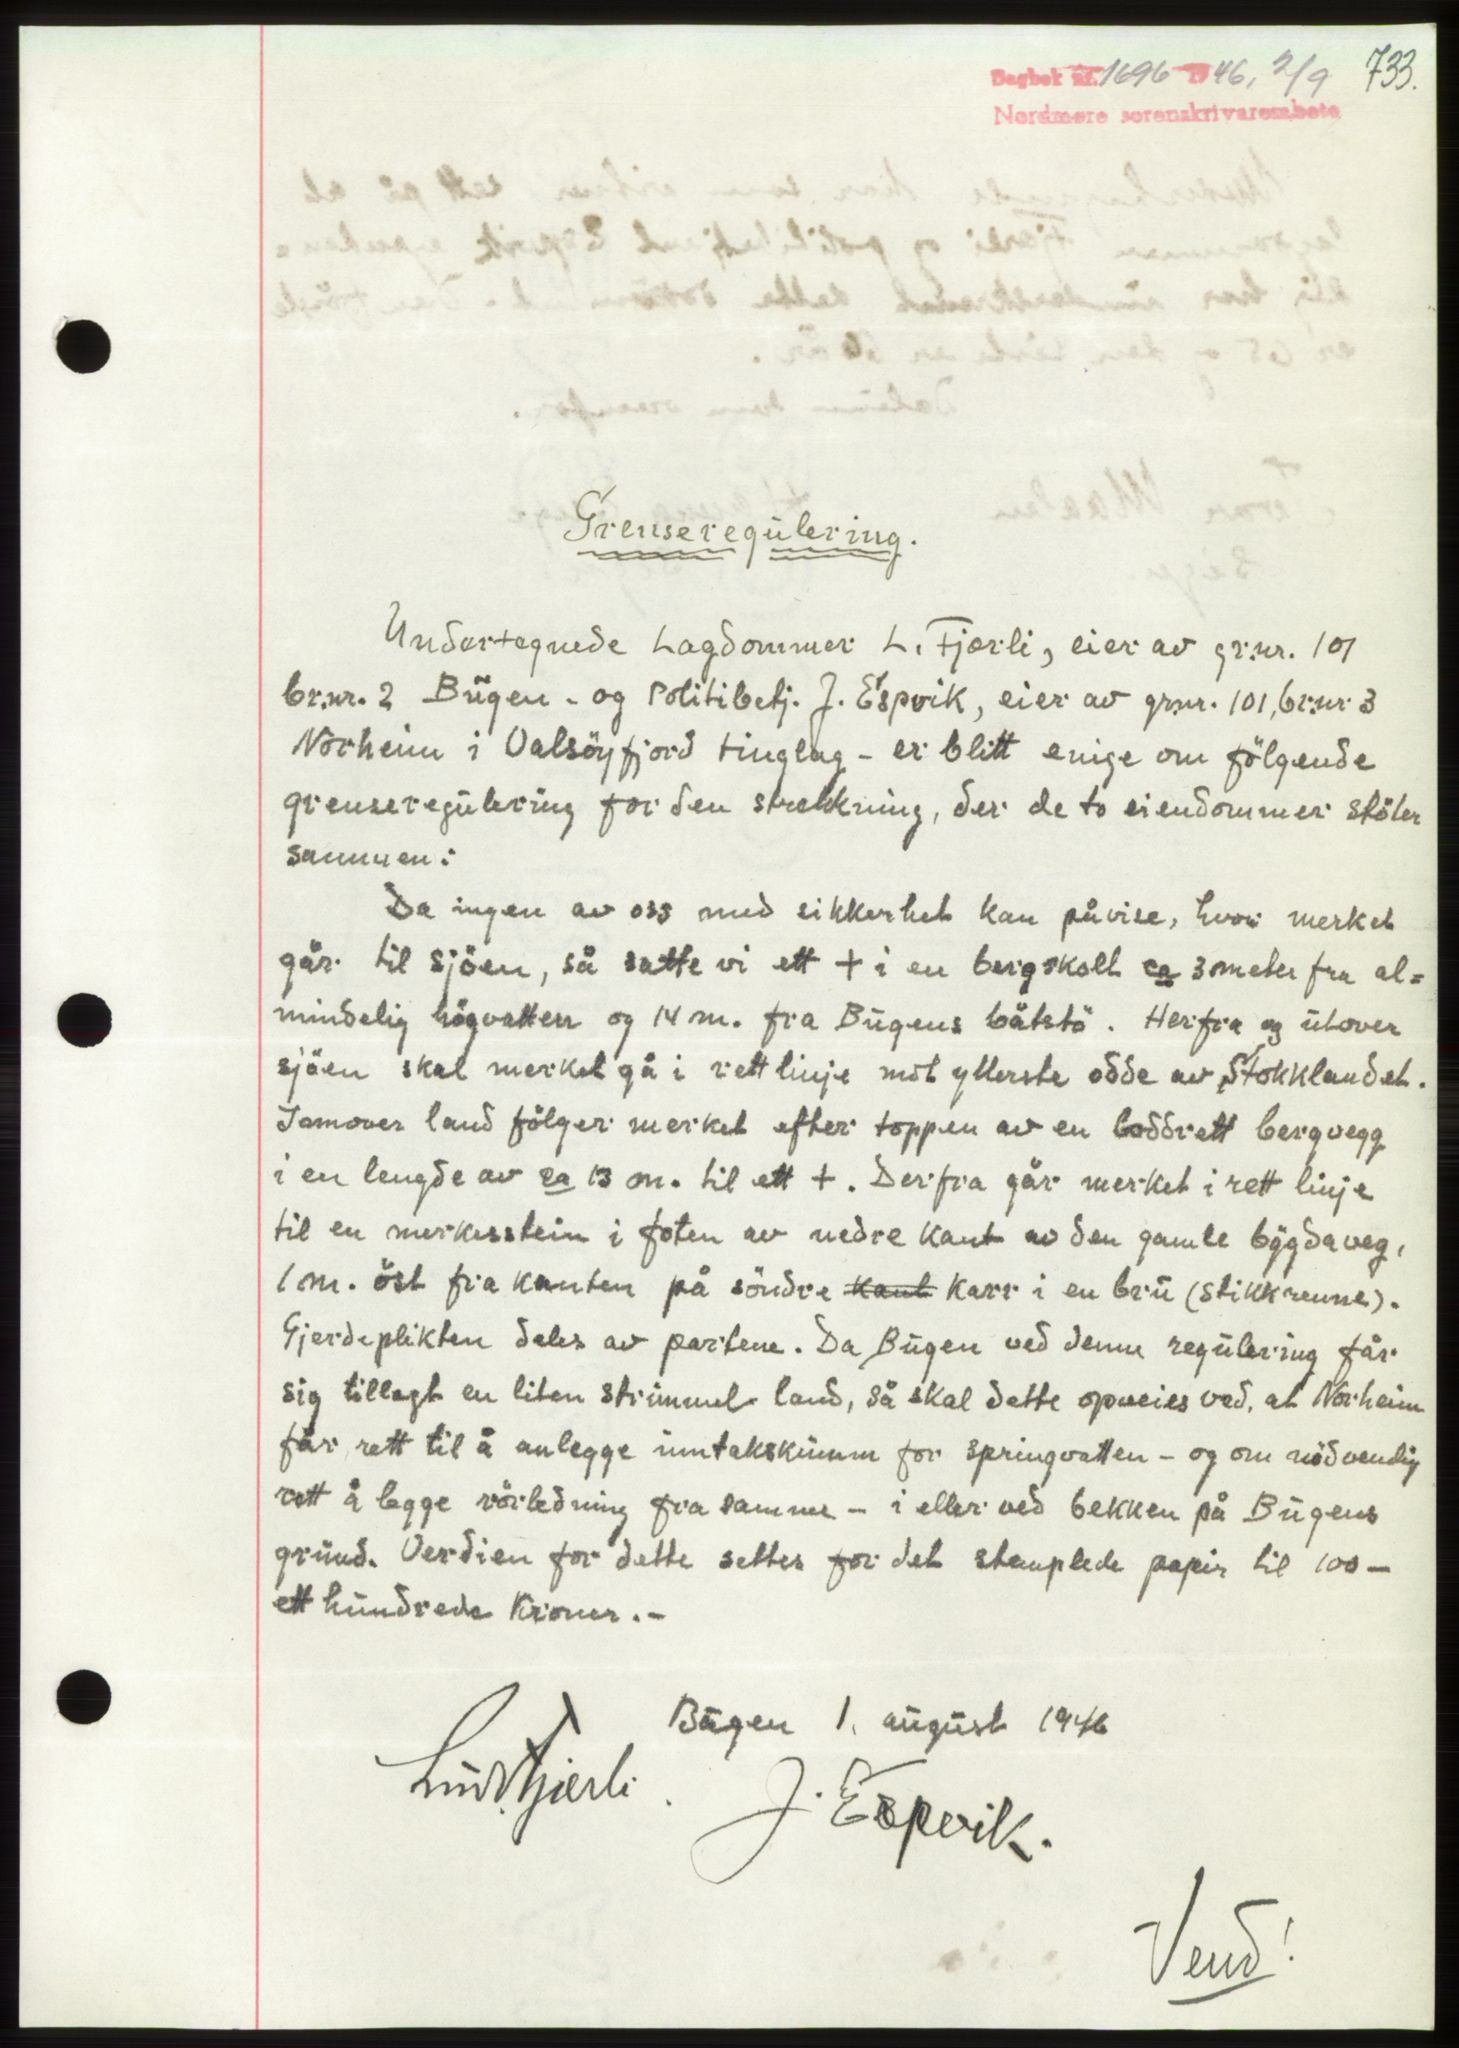 Dagbok nr. 1696 1946, 2/9 733.
Nordmøre sorenskrivarembete
Grenseregulering.
Undertegnede Lagdommer L. Fjærli, eier av gr.nr. 101
br.nr. 2 Bugen - og Politibetj. J. Espvik, eier av gr.nr. 101, br.nr 3
Norheim i Valsöyfjord tinglag - er blitt enige om fölgende
grenseregulering for den strekkning, der de to eiendommer stöter
sammen:
Da ingen av oss med sikkerhet kan påvise, hvor merket
går til sjöen, så satte vi ett + i en bergskolt ca 3 meter fra al=
mindelig högvatten og 14 m. fra Bugens båtstö. Herfra og utover
sjöen skal merket gå i rett linje mot ytterste odde av Stokklandet.
Innover land fölger merket efter toppen av en loddrett bergvegg
i en lengde av ca 13 m. til ett +. Derfra går merket i rett linje
til en merkesstein i foten av nedre kant av den gamle bygdaveg,
1 m. öst fra kanten på söndre kant karr i en bru (stikkrenne).
Gjerdeplikten deles av partene. Da Bugen ved denne regulering får
sig tillagt en liten strimmel land, så skal dette opveies ved, at Norheim
får rett til å anlegge inntakskumm for springvatten - og om nödvendig
rett å legge rörledning fra samme - i eller ved bekken på Bugens
grund. Verdien for dette settes for det stemplede papir til 100 -
ett hundrede Kroner. -
Bugen 1. august 1946
Ludv. Fjærli. J. Espvik.
Vend!